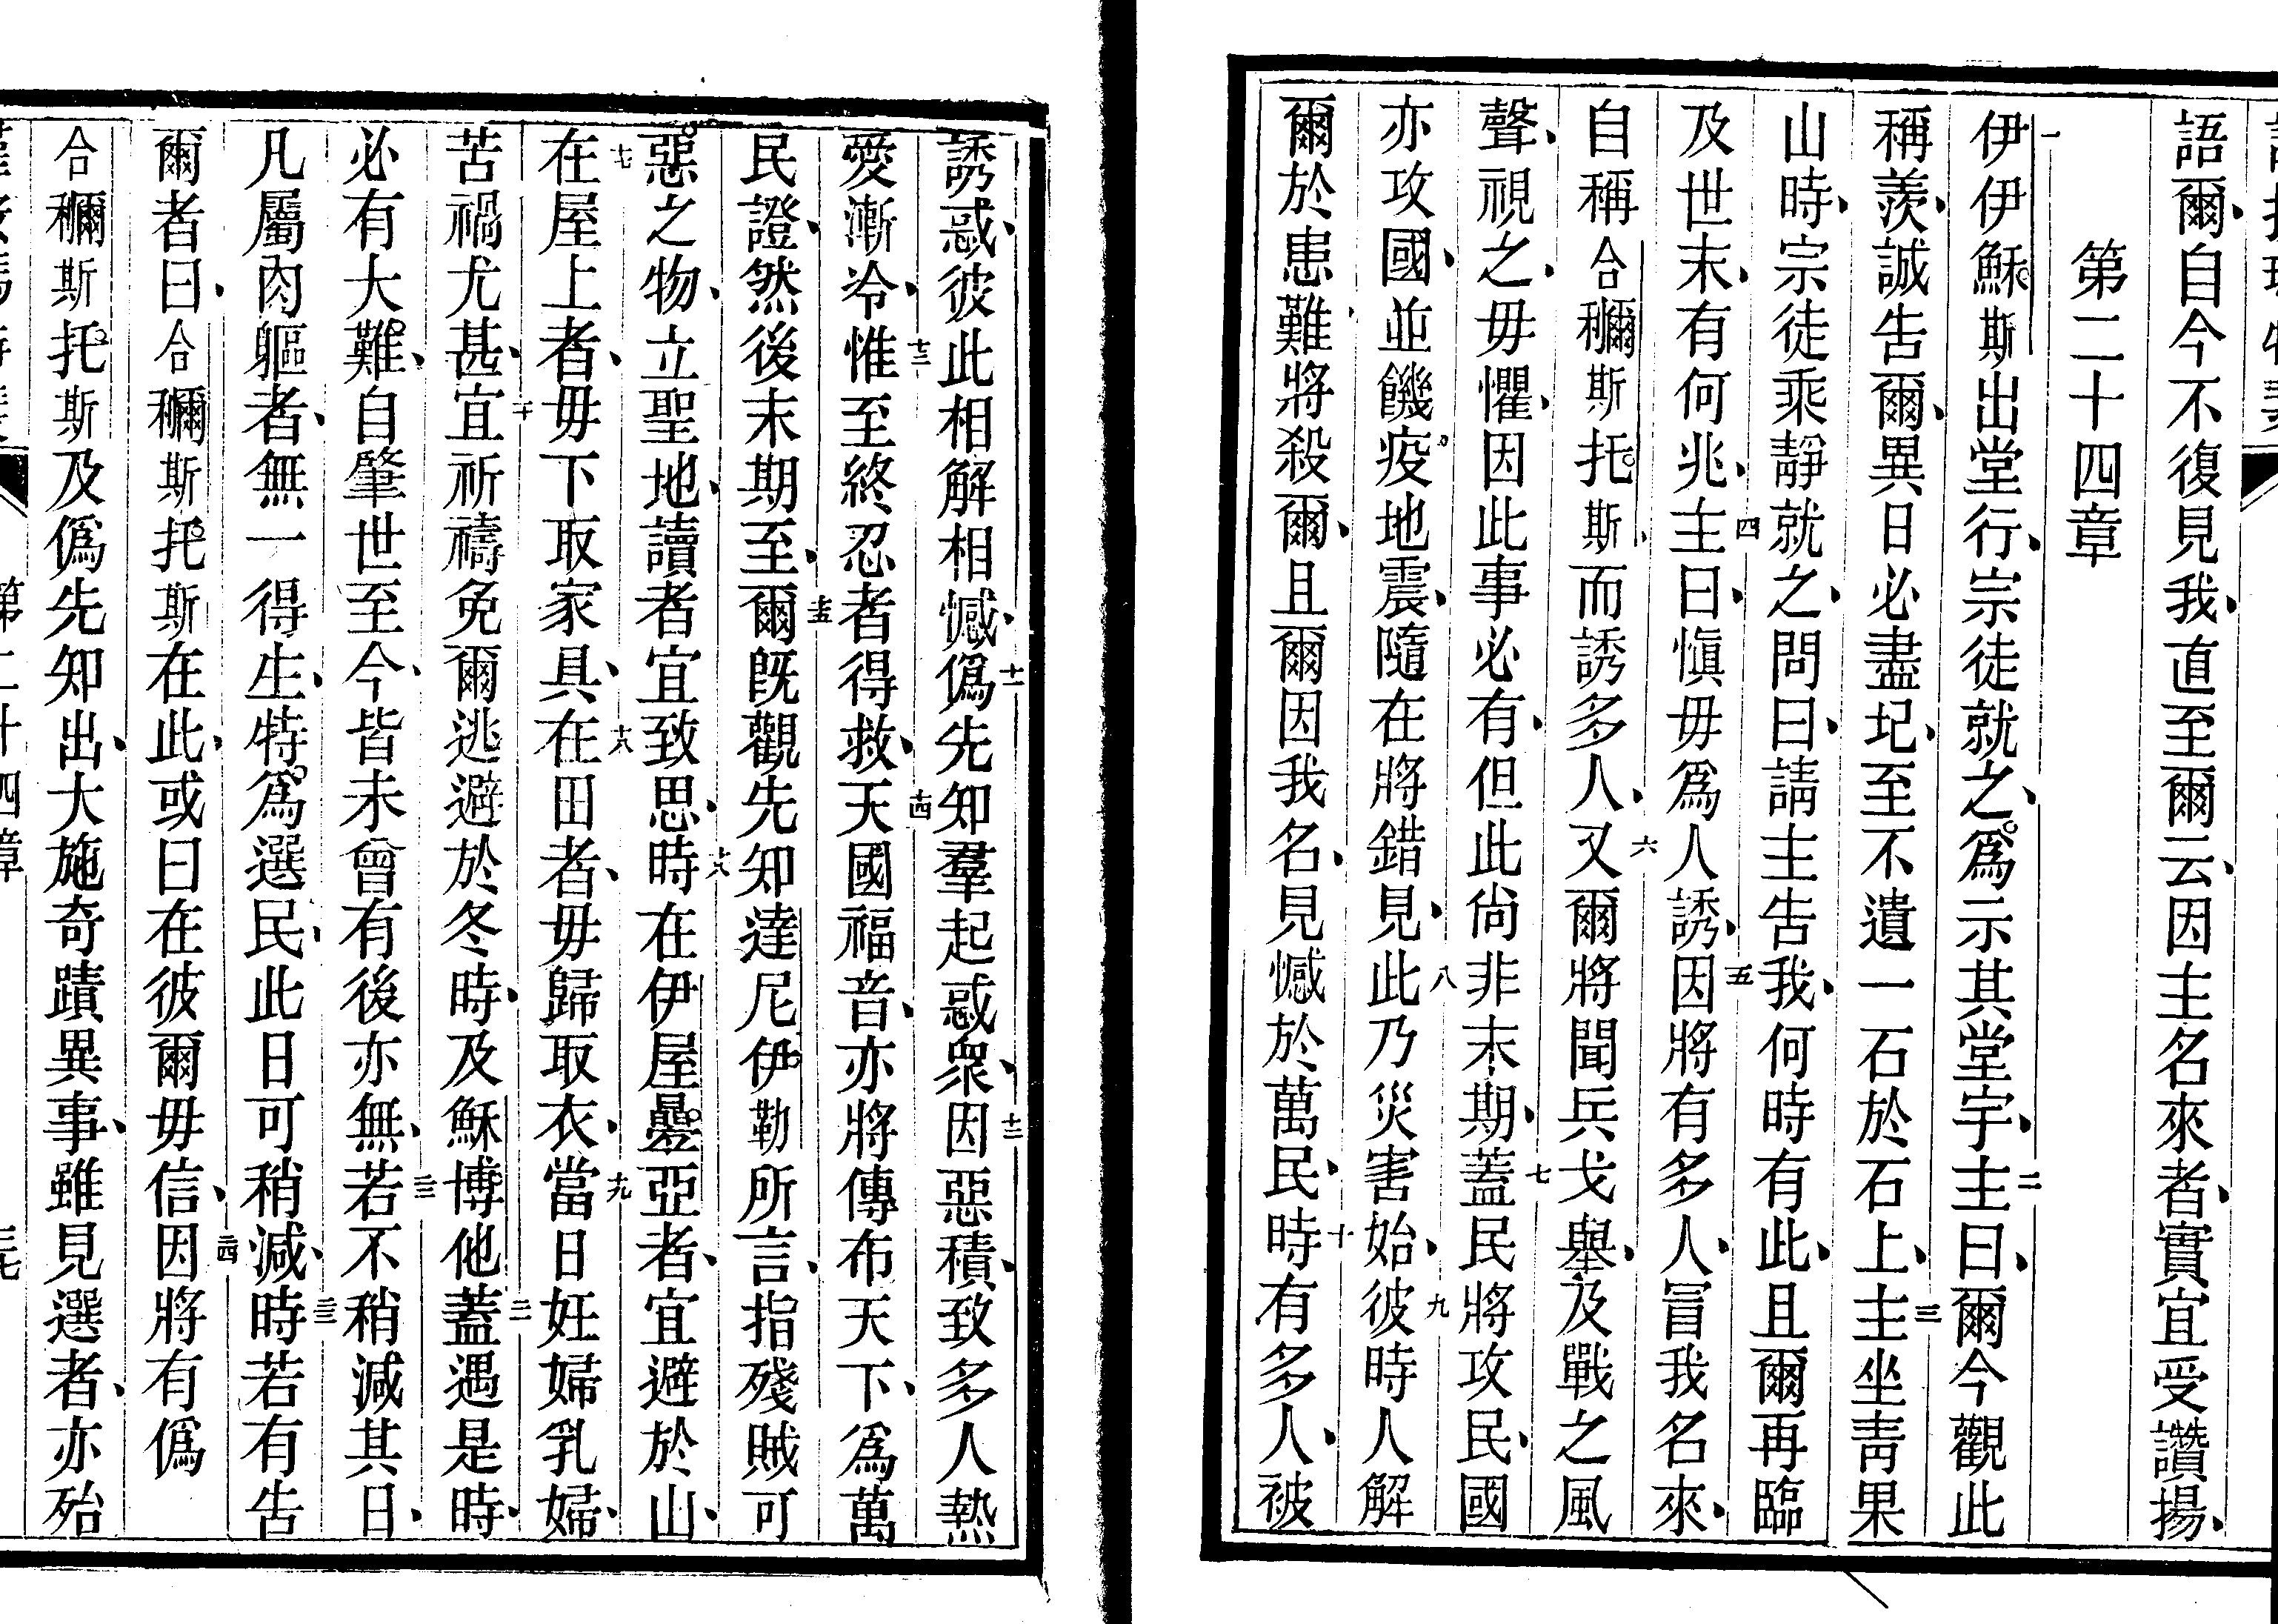 語爾自今不復見我、直至爾云、因主名來者、實宜受讚揚、
第二十四章
一伊伊穌斯出堂行、宗徒就之、爲示其堂宇、二主曰、爾今觀此
稱羨、誠告爾、異日必盡圮、至不遺一石於石上、三主坐靑果
山時、宗徒乘靜就之、問曰、請主告我、何時有此、且爾再臨
及世末、有何兆、四主曰、愼毋爲人誘、五因將有多人、冒我名來、
自稱合穪斯托斯、而誘多人、六又爾將聞兵戈舉、及戰之風
聲、視之、毋懼、因此事必有、但此尙非末期、七蓋民將攻民、國
亦攻國、並饑疫地震、隨在將錯見、八此乃災害始、九彼時人解
爾於患難、將殺爾、且爾因我名、見憾於萬民、十時有多人、被
誘惑、彼此相解相憾、十一僞先知羣起惑衆、十二因惡積、致多人熱
愛漸冷、十三惟至終忍者得救、十四天國福音、亦將傳布天下、爲萬
民證、然後末期至、十五爾旣觀先知達尼伊勒所言、指殘賊可
惡之物、立聖地、讀者宜致思、十六時在伊屋疊亞者、宜避於山、
十七在屋上者、毋下取家具、十八在田者、毋歸取衣、十九當日妊婦乳婦、
苦禍尤甚、二十宜祈禱免爾逃避於冬時、及穌博他、二一蓋遇是時、
必有大難、自肇世至今、皆未曾有、後亦無、二二若不稍減其日、
凡屬內軀者、無一得生、特爲選民、此日可稍減、二三時若有告
爾者曰、合穪斯托斯在此、或曰在彼、爾毋信、二四因將有僞
合穪斯托斯及僞先知出、大施奇蹟異事、雖見選者、亦殆
第二十四章